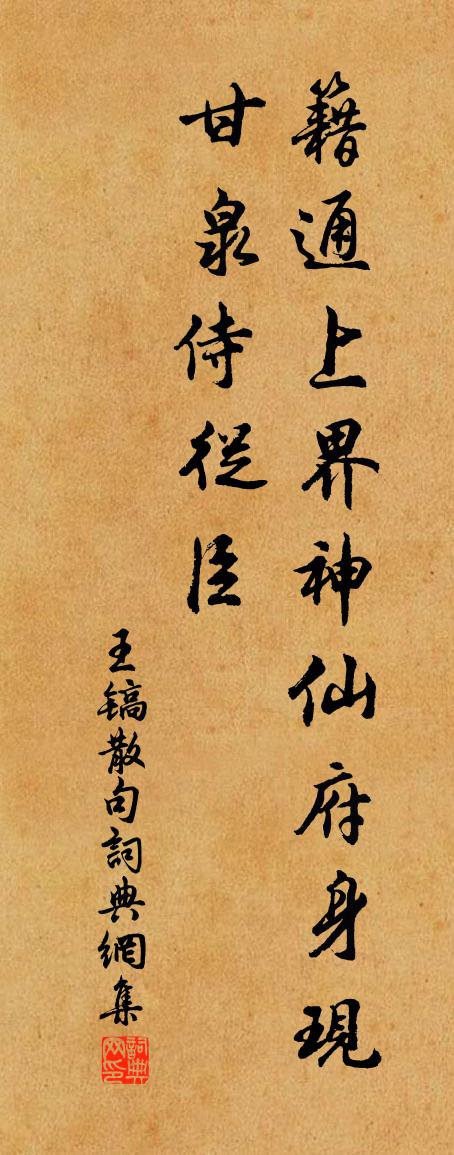 籍通上界神仙府身現
甘泉侍從臣
王镐散句詞典網集
詞典网印